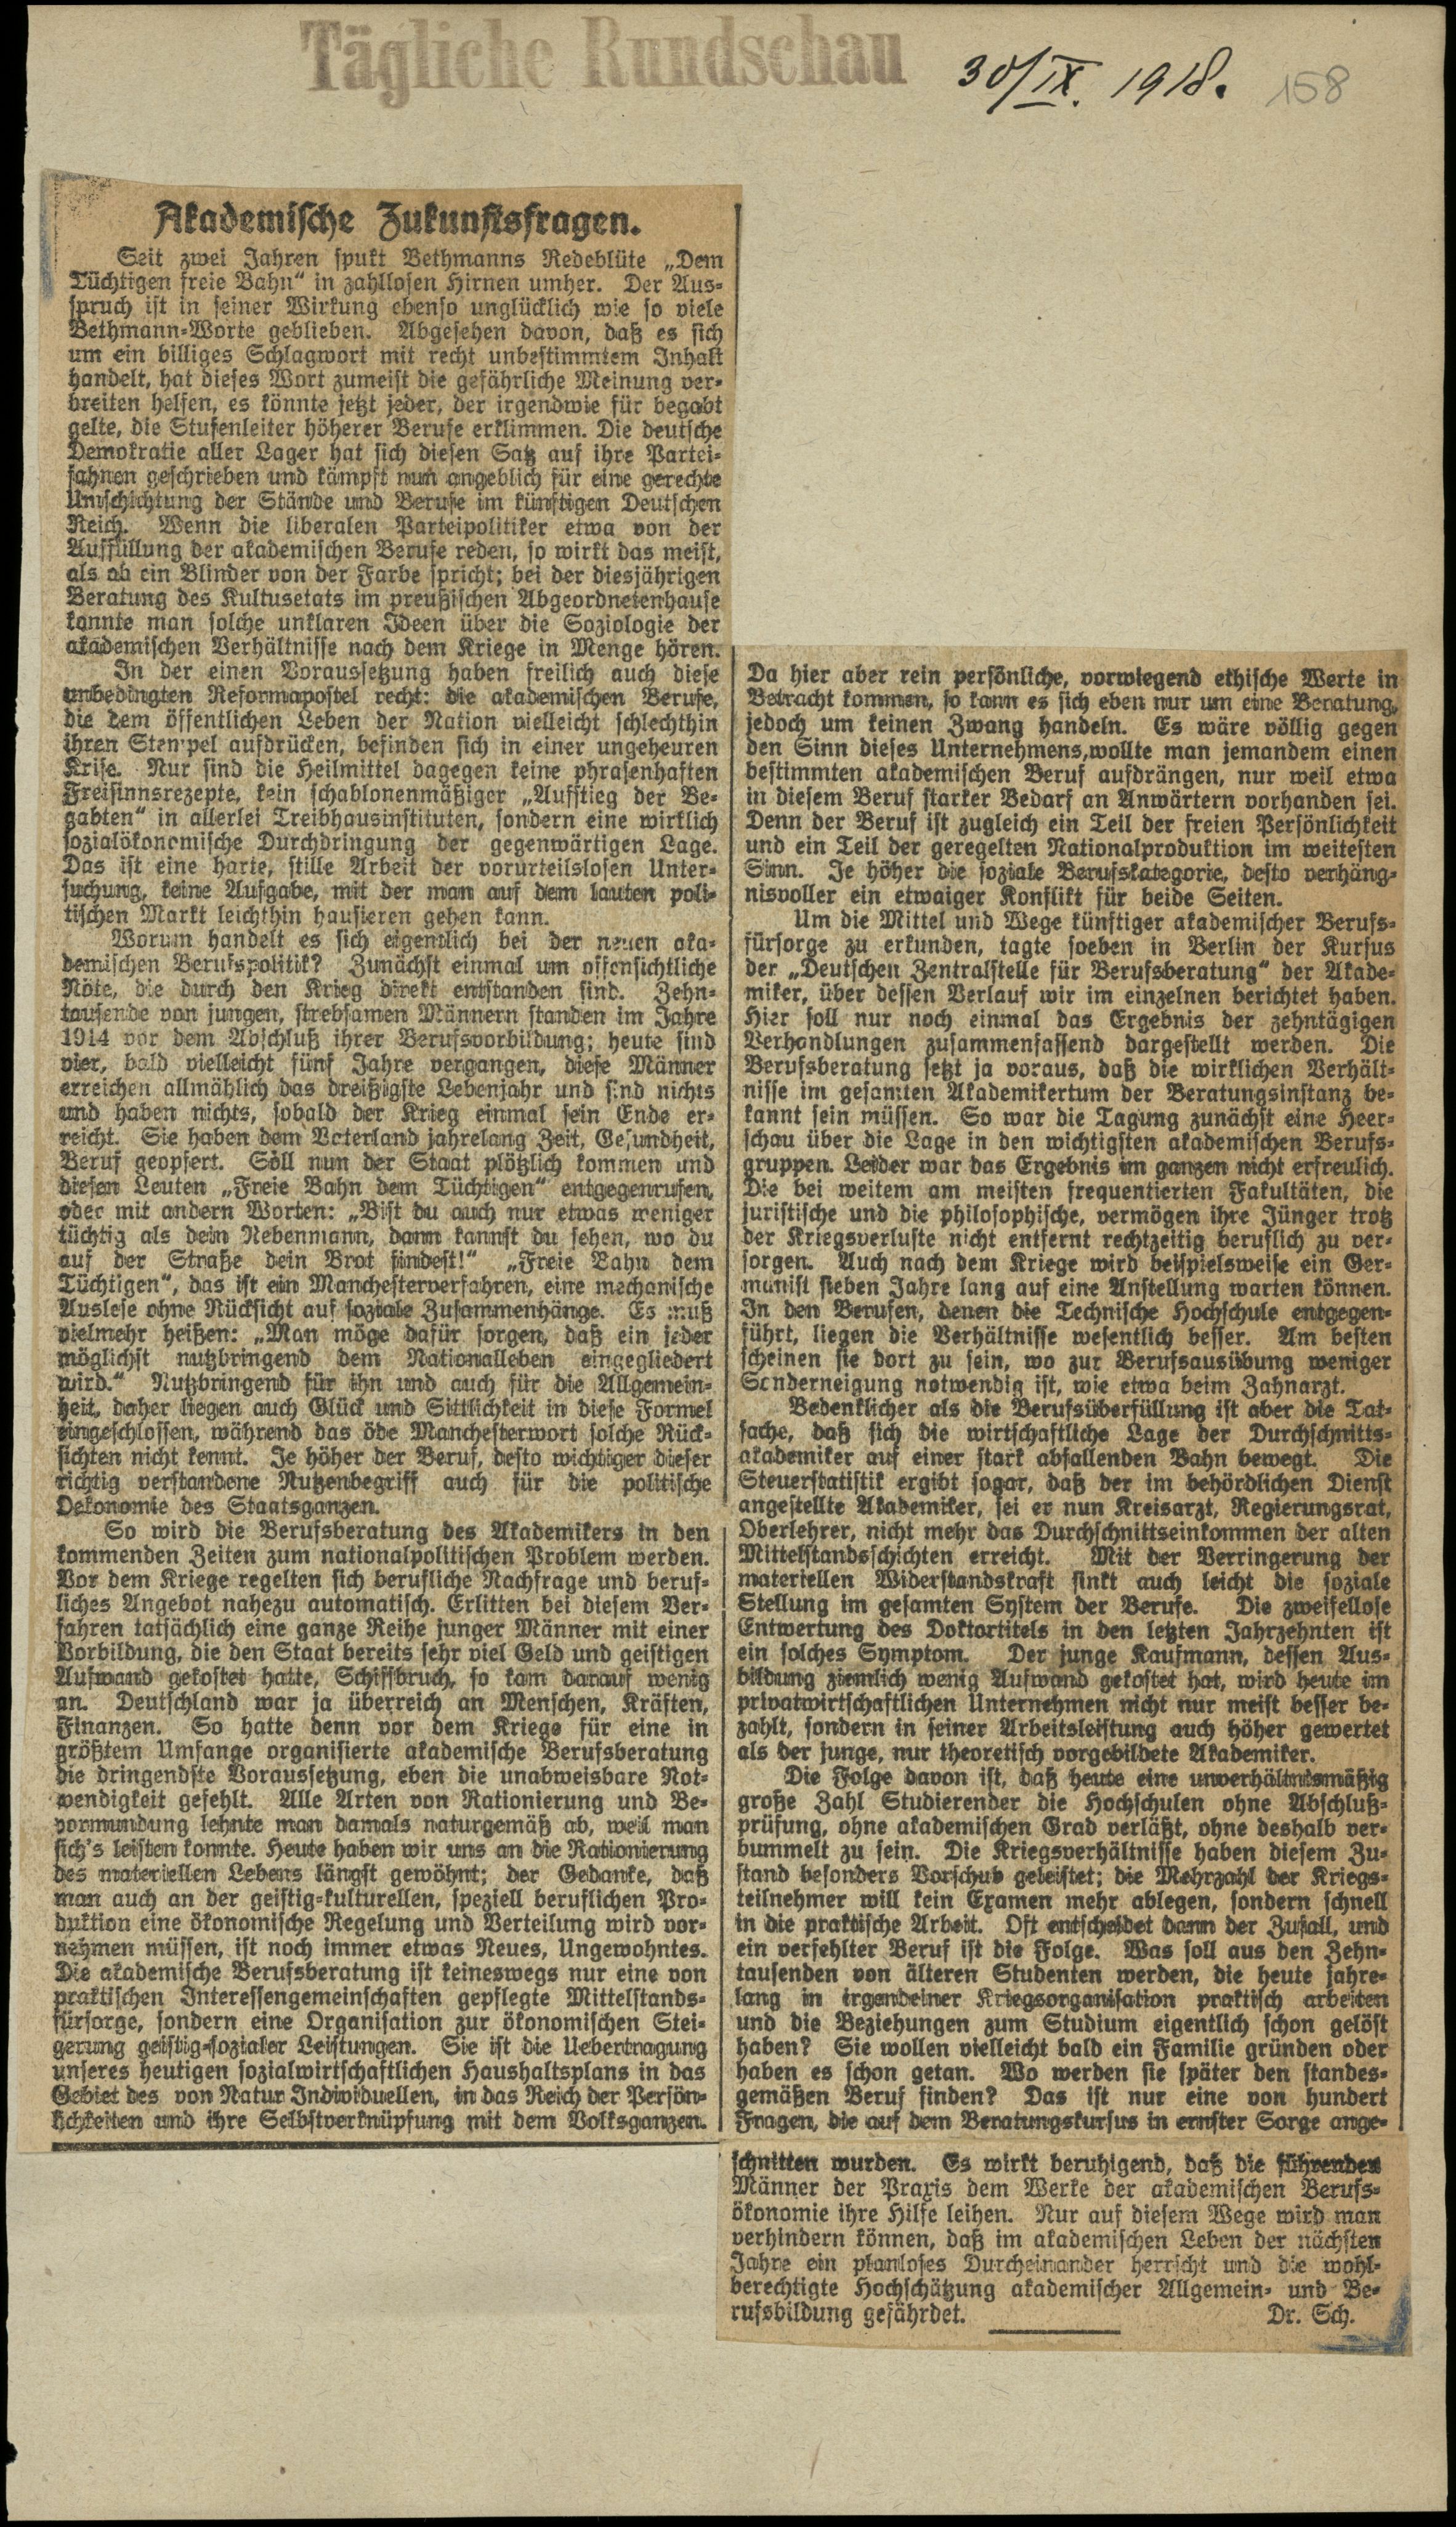 Tägliche Rundschau
30/IX. 1918.
158
Akademische Zukunftsfragen.
Seit zwei Jahren spukt Bethmanns Redeblüte „Dem
Tüchtigen freie Bahn“ in zahllosen Hirnen umher. Der Aus-
spruch ist in seiner Wirkung ebenso unglücklich wie so viele
Bethmann-Worte geblieben. Abgesehen davon, daß es sich
um ein billiges Schlagwort mit recht unbestimmtem Inhalt
handelt, hat dieses Wort zumeist die gefährliche Meinung ver-
breiten helfen, es könnte jetzt jeder, der irgendwie für begabt
gelte, die Stufenleiter höherer Berufe erklimmen. Die deutsche
Demokratie aller Lager hat sich diesen Satz auf ihre Partei-
fahnen geschrieben und kämpft nun angeblich für eine gerechte
Umschichtung der Stände und Berufe im künftigen Deutschen
Reich. Wenn die liberalen Parteipolitiker etwa von der
Auffüllung der akademischen Berufe reden, so wirkt das meist,
als ob ein Blinder von der Farbe spricht; bei der diesjährigen
Beratung des Kultusetats im preußischen Abgeordnetenhause
konnte man solche unklaren Ideen über die Soziologie der
akademischen Verhältnisse nach dem Kriege in Menge hören.
In der einen Voraussetzung haben freilich auch diese
unbedingten Reformapostel recht: die akademischen Berufe,
die dem öffentlichen Leben der Nation vielleicht schlechthin
ihren Stempel aufdrücken, befinden sich in einer ungeheuren
Krise. Nur sind die Heilmittel dagegen keine phrasenhaften
Freisinnsrezepte, kein schablonenmäßiger „Aufstieg der Be-
gabten“ in allerlei Treibhausinstituten, sondern eine wirklich
sozialökonomische Durchdringung der gegenwärtigen Lage.
Das ist eine harte, stille Arbeit der vorurteilslosen Unter-
suchung, keine Aufgabe, mit der man auf dem lauten poli-
tischen Markt leichthin hausieren gehen kann.
Worum handelt es sich eigentlich bei der neuen aka-
demischen Berufspolitik? Zunächst einmal um offensichtliche
Nöte, die durch den Krieg direkt entstanden sind. Zehn-
tausende von jungen, strebsamen Männern standen im Jahre
1914 vor dem Abschluß ihrer Berufsvorbildung; heute sind
vier, bald vielleicht fünf Jahre vergangen, diese Männer
erreichen allmählich das dreißigste Lebenjahr und sind nichts
und haben nichts, sobald der Krieg einmal sein Ende er-
reicht. Sie haben dem Vaterland jahrelang Zeit, Gesundheit,
Beruf geopfert. Soll nun der Staat plötzlich kommen und
diesen Leuten „Freie Bahn dem Tüchtigen“ entgegenrufen,
oder mit andern Worten: „Bist du auch nur etwas weniger
tüchtig als dein Nebenmann, dann kannst du sehen, wo du
auf der Straße dein Brot findest!“ „Freie Bahn dem
Tüchtigen“, das ist ein Manchesterverfahren, eine mechanische
Auslese ohne Rücksicht auf soziale Zusammenhänge. Es muß
vielmehr heißen: „Man möge dafür sorgen, daß ein jeder
möglichst nutzbringend dem Nationalleben eingegliedert
wird.“ Nutzbringend für ihn und auch für die Allgemein-
heit, daher liegen auch Glück und Sittlichkeit in diese Formel
eingeschlossen, während das öde Manchesterwort solche Rück-
sichten nicht kennt. Je höher der Beruf, desto wichtiger dieser
richtig verstandene Nutzenbegriff auch für die politische
Oekonomie des Staatsganzen.
So wird die Berufsberatung des Akademikers in den
kommenden Zeiten zum nationalpolitischen Problem werden.
Vor dem Kriege regelten sich berufliche Nachfrage und beruf-
liches Angebot nahezu automatisch. Erlitten bei diesem Ver-
fahren tatsächlich eine ganze Reihe junger Männer mit einer
Vorbildung, die den Staat bereits sehr viel Geld und geistigen
Aufwand gekostet hatte, Schiffbruch, so kam darauf wenig
an. Deutschland war ja überreich an Menschen, Kräften,
Finanzen. So hatte denn vor dem Kriege für eine in
größtem Umfange organisierte akademische Berufsberatung
die dringendste Voraussetzung, eben die unabweisbare Not-
wendigkeit gefehlt. Alle Arten von Rationierung und Be-
vormundung lehnte man damals naturgemäß ab, weil man
sich's leisten konnte. Heute haben wir uns an die Rationierung
des materiellen Lebens längst gewöhnt; der Gedanke, daß
man auch an der geistig-kulturellen, speziell beruflichen Pro-
duktion eine ökonomische Regelung und Verteilung wird vor-
nehmen müssen, ist noch immer etwas Neues, Ungewohntes.
Die akademische Berufsberatung ist keineswegs nur eine von
praktischen Interessengemeinschaften gepflegte Mittelstands-
fürsorge, sondern eine Organisation zur ökonomischen Stei-
gerung geistig-sozialer Leistungen. Sie ist die Uebertragung
unseres heutigen sozialwirtschaftlichen Haushaltsplans in das
Gebiet des von Natur Individuellen, in das Reich der Persön-
lichkeiten und ihre Selbstverknüpfung mit dem Volksganzen.
Da hier aber rein persönliche, vorwiegend ethische Werte in
Betracht kommen, so kann es sich eben nur um eine Beratung,
jedoch um keinen Zwang handeln. Es wäre völlig gegen
den Sinn dieses Unternehmens, wollte man jemandem einen
bestimmten akademischen Beruf aufdrängen, nur weil etwa
in diesem Beruf starker Bedarf an Anwärtern vorhanden sei.
Denn der Beruf ist zugleich ein Teil der freien Persönlichkeit
und ein Teil der geregelten Nationalproduktion im weitesten
Sinn. Je höher die soziale Berufskategorie, desto verhäng-
nisvoller ein etwaiger Konflikt für beide Seiten.
Um die Mittel und Wege künftiger akademischer Berufs-
fürsorge zu erkunden, tagte soeben in Berlin der Kursus
der „Deutschen Zentralstelle für Berufsberatung“ der Akade-
miker, über dessen Verlauf wir im einzelnen berichtet haben.
Hier soll nur noch einmal das Ergebnis der zehntägigen
Verhandlungen zusammenfassend dargestellt werden. Die
Berufsberatung setzt ja voraus, daß die wirklichen Verhält-
nisse im gesamten Akademikertum der Beratungsinstanz be-
kannt sein müssen. So war die Tagung zunächst eine Heer-
schau über die Lage in den wichtigsten akademischen Berufs-
gruppen. Leider war das Ergebnis im ganzen nicht erfreulich.
Die bei weitem am meisten frequentierten Fakultäten, die
juristische und die philosophische, vermögen ihre Jünger trotz
der Kriegsverluste nicht entfernt rechtzeitig beruflich zu ver-
sorgen. Auch nach dem Kriege wird beispielsweise ein Ger-
manist sieben Jahre lang auf eine Anstellung warten können.
In den Berufen, denen die Technische Hochschule entgegen-
führt, liegen die Verhältnisse wesentlich besser. Am besten
scheinen sie dort zu sein, wo zur Berufsausübung weniger
Sonderneigung notwendig ist, wie etwa beim Zahnarzt.
Bedenklicher als die Berufsüberfüllung ist aber die Tat-
sache, daß sich die wirtschaftliche Lage der Durchschnitts-
akademiker auf einer stark abfallenden Bahn bewegt. Die
Steuerstatistik ergibt sogar, daß der im behördlichen Dienst
angestellte Akademiker, sei er nun Kreisarzt, Regierungsrat,
Oberlehrer, nicht mehr das Durchschnittseinkommen der alten
Mittelstandsschichten erreicht. Mit der Verringerung der
materiellen Widerstandskraft sinkt auch leicht die soziale
Stellung im gesamten System der Berufe. Die zweifellose
Entwertung des Doktortitels in den letzten Jahrzehnten ist
ein solches Symptom. Der junge Kaufmann, dessen Aus-
bildung ziemlich wenig Aufwand gekostet hat, wird heute im
privatwirtschaftlichen Unternehmen nicht nur meist besser be-
zahlt, sondern in seiner Arbeitsleistung auch höher gewertet
als der junge, nur theoretisch vorgebildete Akademiker.
Die Folge davon ist, daß heute eine unverhältnismäßig
große Zahl Studierender die Hochschulen ohne Abschluß-
prüfung, ohne akademischen Grad verläßt, ohne deshalb ver-
bummelt zu sein. Die Kriegsverhältnisse haben diesem Zu-
stand besonders Vorschub geleistet; die Mehrzahl der Kriegs-
teilnehmer will kein Examen mehr ablegen, sondern schnell
in die praktische Arbeit. Oft entscheidet dann der Zufall, und
ein verfehlter Beruf ist die Folge. Was soll aus den Zehn-
tausenden von älteren Studenten werden, die heute jahre-
lang in irgendeiner Kriegsorganisation praktisch arbeiten
und die Beziehungen zum Studium eigentlich schon gelöst
haben? Sie wollen vielleicht bald ein Familie gründen oder
haben es schon getan. Wo werden sie später den standes-
gemäßen Beruf finden? Das ist nur eine von hundert
Fragen, die auf dem Beratungskursus in ernster Sorge ange-
schnitten wurden. Es wirkt beruhigend, daß die führenden
Männer der Praxis dem Werke der akademischen Berufs-
ökonomie ihre Hilfe leihen. Nur auf diesem Wege wird man
verhindern können, daß im akademischen Leben der nächsten
Jahre ein planloses Durcheinander herrscht und die wohl-
berechtigte Hochschätzung akademischer Allgemein- und Be-
rufsbildung gefährdet. Dr. Sch.